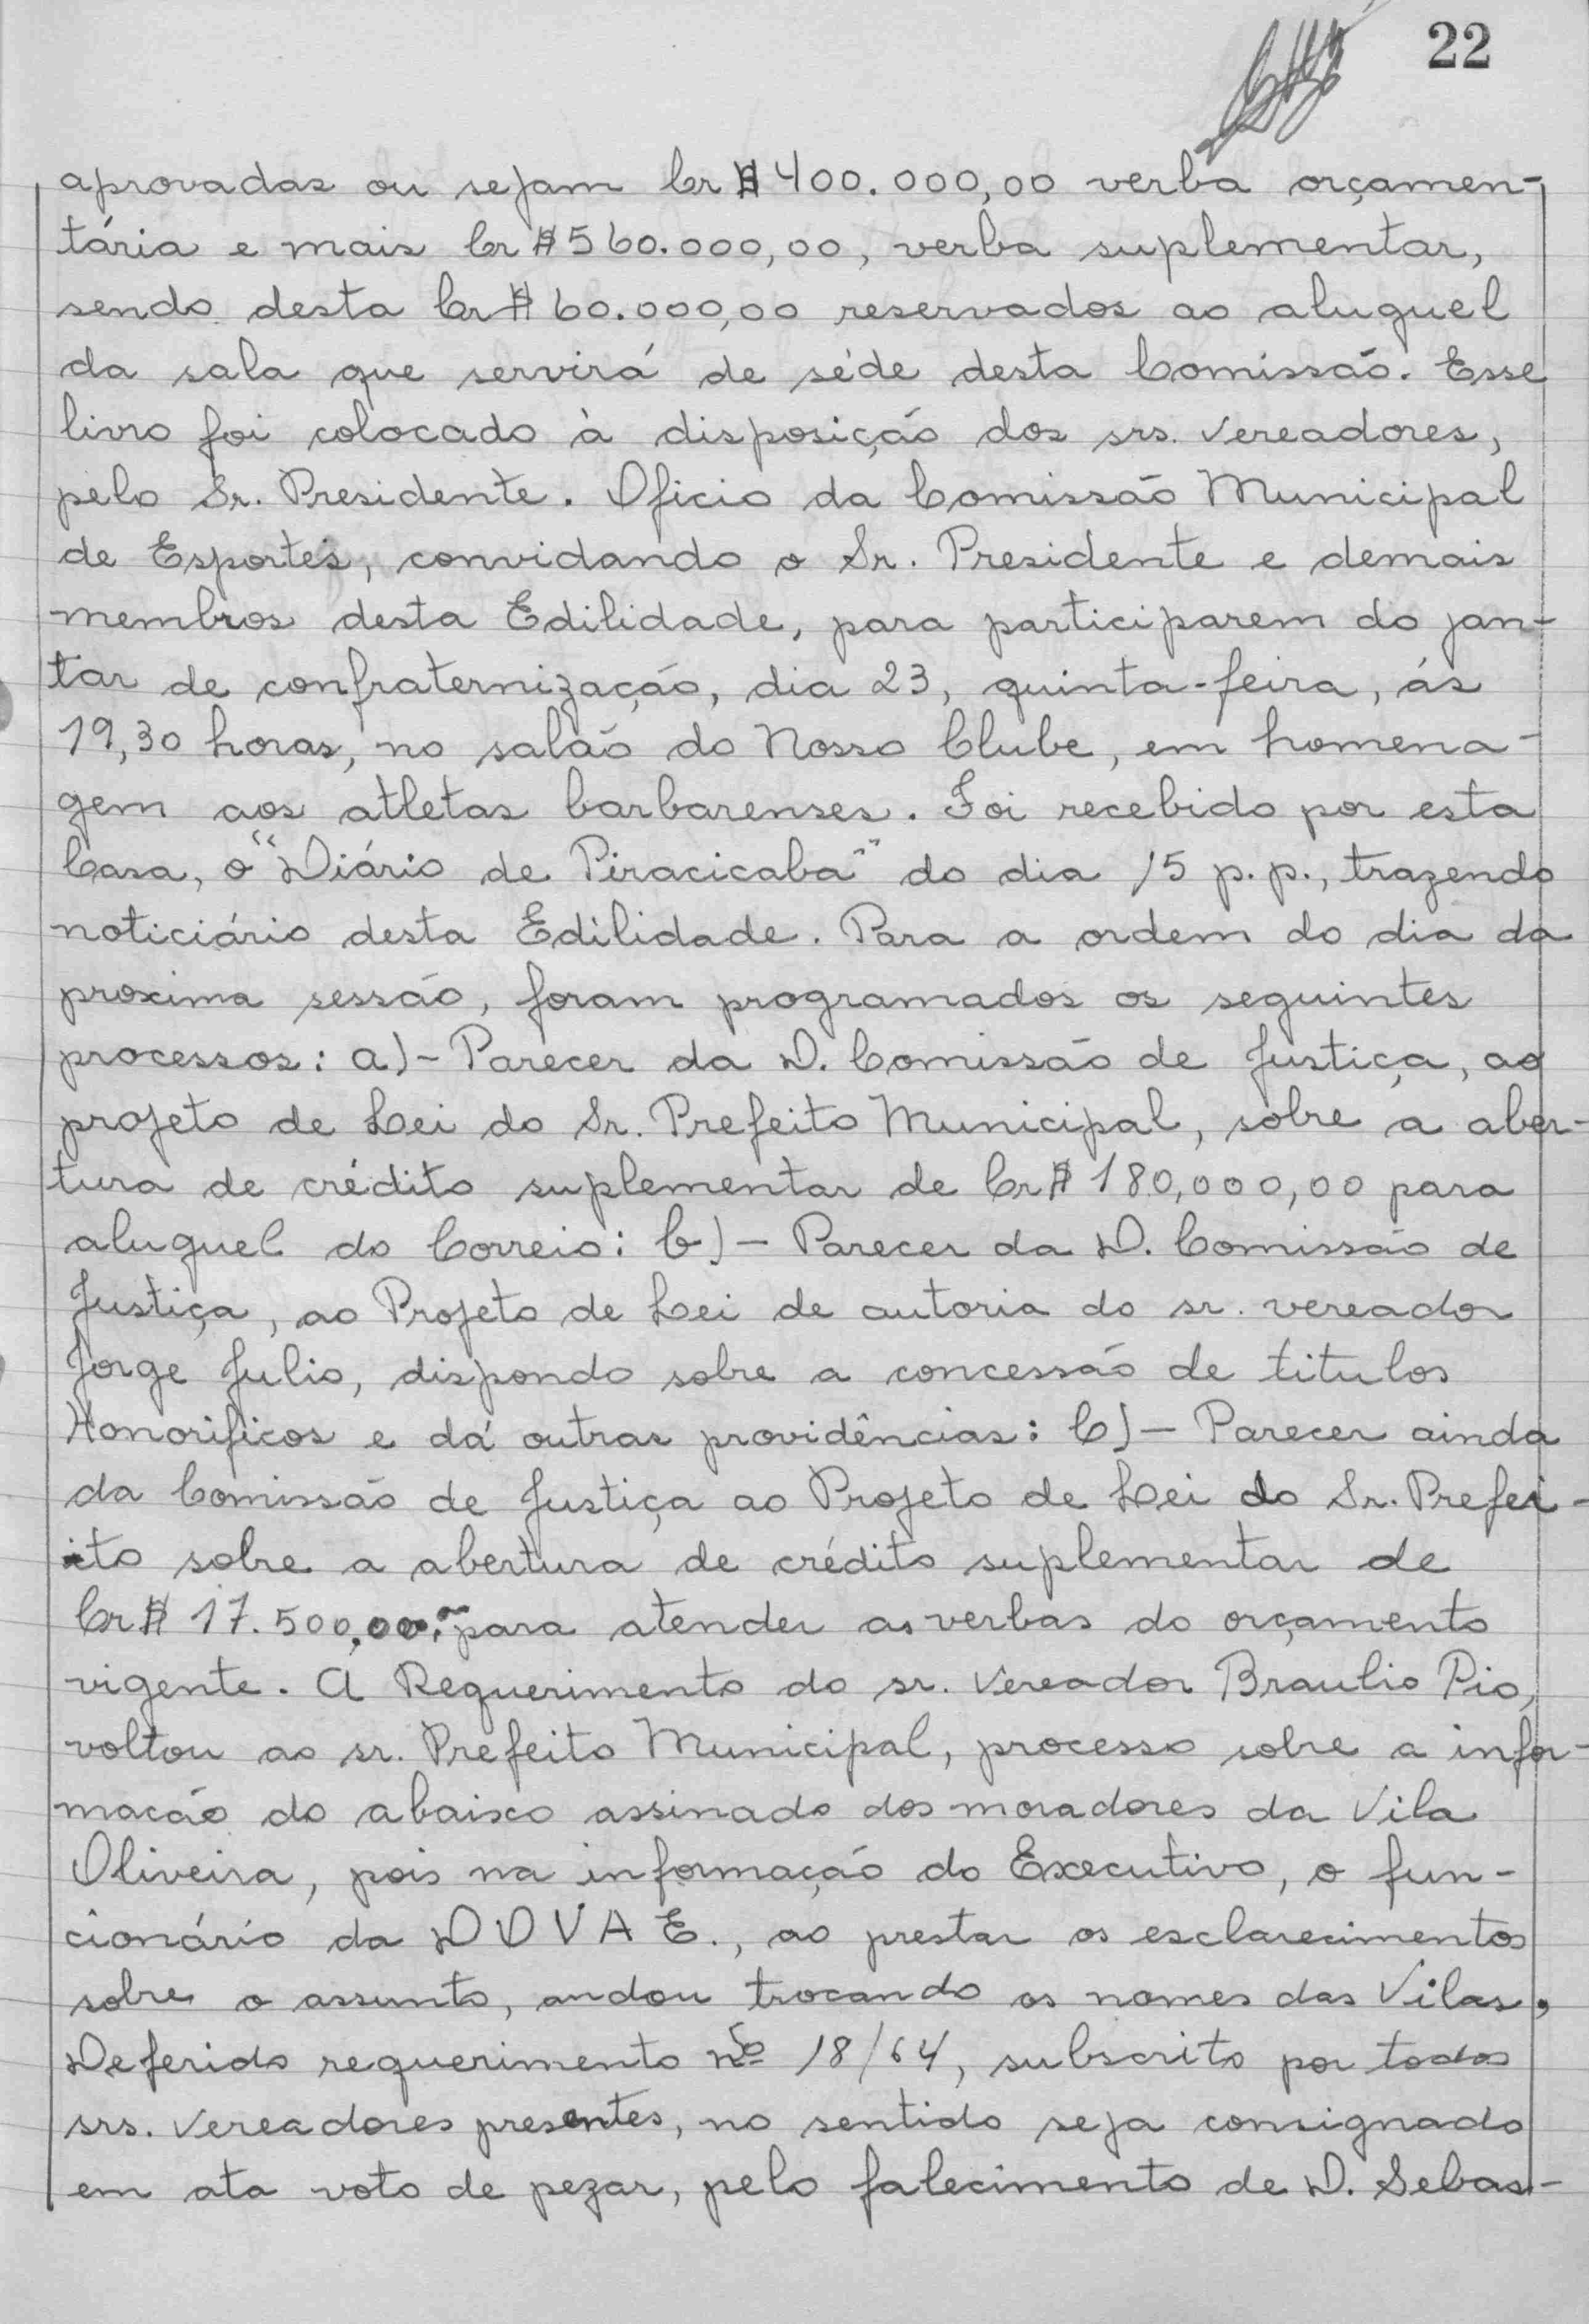 22
aprovadas ou sejam Cr$ 400.000,00 verba orçamen-
tária e mais Cr$ 560.000,00, verba suplementar,
sendo desta Cr$ 60.000,00 reservados ao aluguel
da sala que servirá de séde desta Comissão. Esse
livro foi colocado à disposição dos srs. Vereadores,
pelo Sr. Presidente. Oficio da Comissão Municipal
de Esportes, convidando o Sr. Presidente e demais
membros desta Edilidade, para participarem do jan-
tar de confraternização, dia 23, quinta-feira, ás
19,30 horas, no salão do Nosso Clube, em homena-
gem aos atletas barbarenses. Foi recebido por esta
Casa, o "Diário de Piracicaba" do dia 15 p.p., trazendo
noticiário desta Edilidade. Para a ordem do dia da
proxima sessão, foram programados os seguintes
processos: a)- Parecer da D. Comissão de Justiça, ao
projeto de Lei do Sr. Prefeito Municipal, sobre a aber-
tura de crédito suplementar de Cr$ 180,000,00 para
aluguel do Correio: b)- Parecer da D. Comissão de
Justiça, ao Projeto de Lei de autoria do sr. vereador
Jorge Julio, dispondo sobre a concessão de titulos
Honorificos e dá outras providências: C)- Parecer ainda
da Comissão de Justiça ao Projeto de Lei do Sr. Prefei-
ito sobre a abertura de crédito suplementar de
Cr$ 17.500,00, para atender as verbas do orçamento
vigente. A Requerimento do sr. Vereador Braulio Pio,
voltou ao sr. Prefeito Municipal, processo sobre a infor-
macão do abaixo assinado dos moradores da Vila
Oliveira, pois na informação do Executivo, o fun-
cionário da D O V A E., ao prestar os esclarecimentos
sobre o assunto, andou trocando os nomes das Vilas,
Deferido requerimento nº 18/64, subscrito por todos
srs. Vereadores presentes, no sentido seja consignado
em ata voto de pezar, pelo falecimento de D. Sebas-